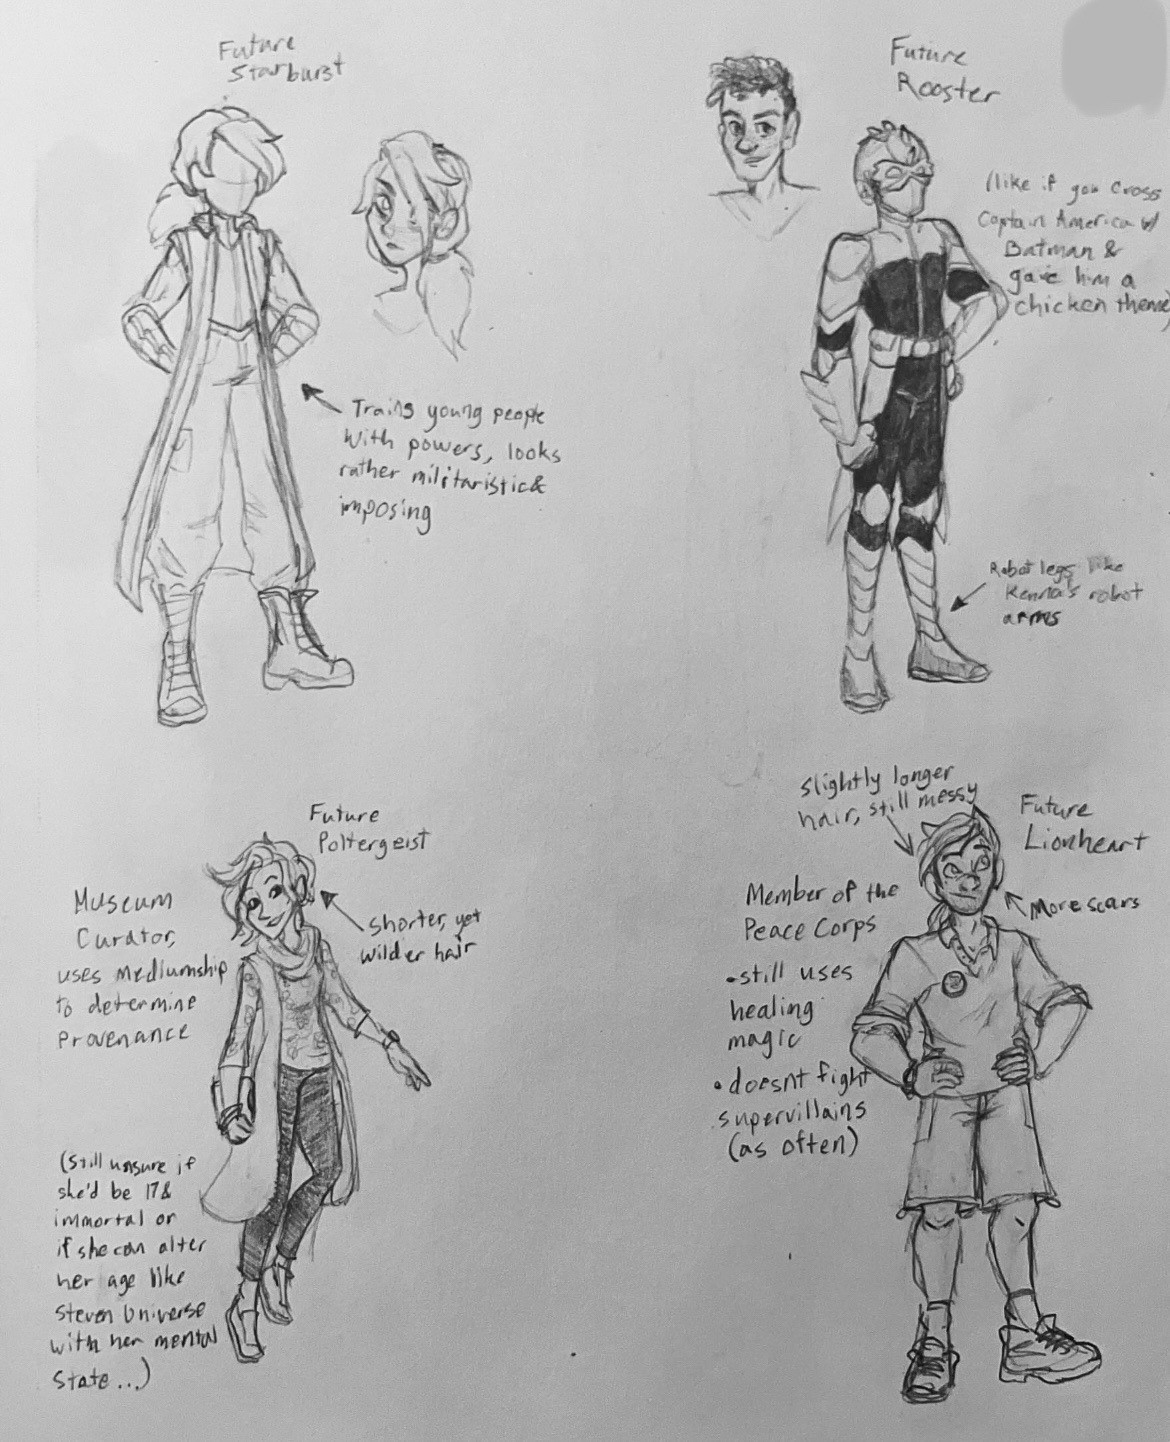 Future
Starburst
Trains young people
with powers, looks
rather militaristic &
imposing
Future
Rooster
(like if you cross
Captain America w/
Batman &
gave him a
chicken theme)
Robot legs like
Kenna's robot
arms
Future
Poltergeist
shorter, yet
wilder hair
Museum
Curator,
uses mediumship
to determine
provenance
(still unsure if
she'd be 17 &
immortal or
if she can alter
her age like
Steven Universe
with her mental
state...)
slightly longer
hair, still messy
Future
Lionheart
More scars
Member of the
Peace Corps
•still uses
healing
magic
•doesnt fight
supervillains
(as often)